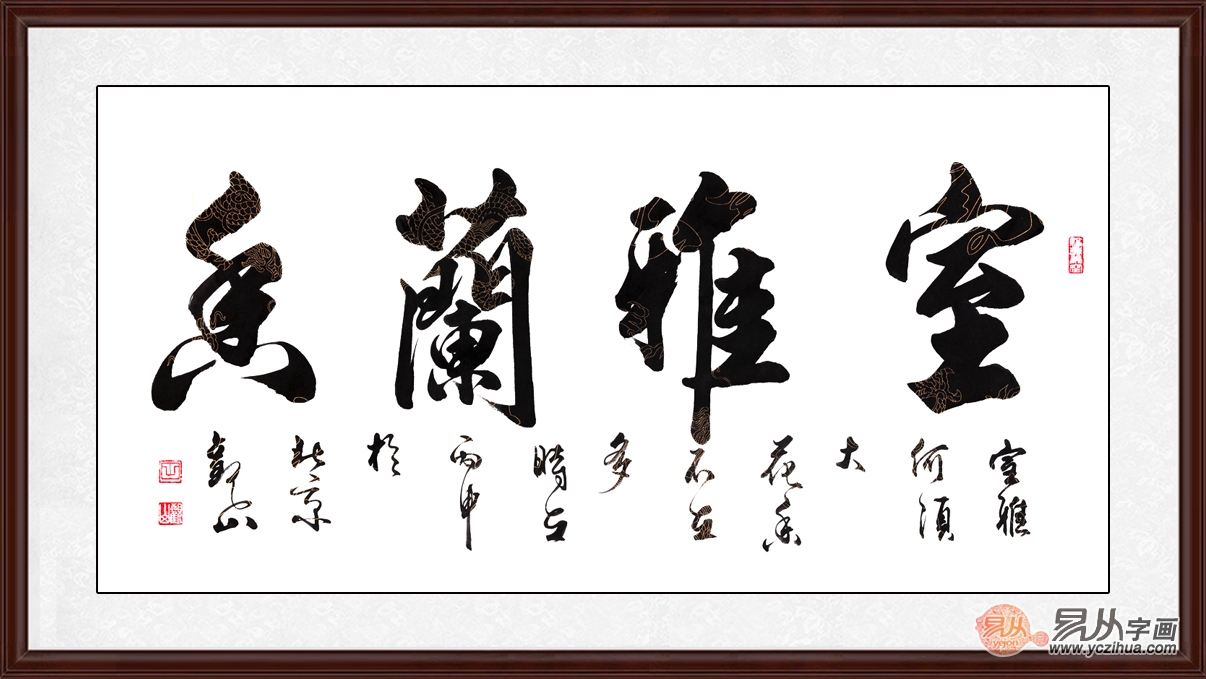 室雅蘭香
室雅
何須
大
花香
不在
多
時在
丙申
於
北京
觀山
易从字画
yejon
www.yczihua.com